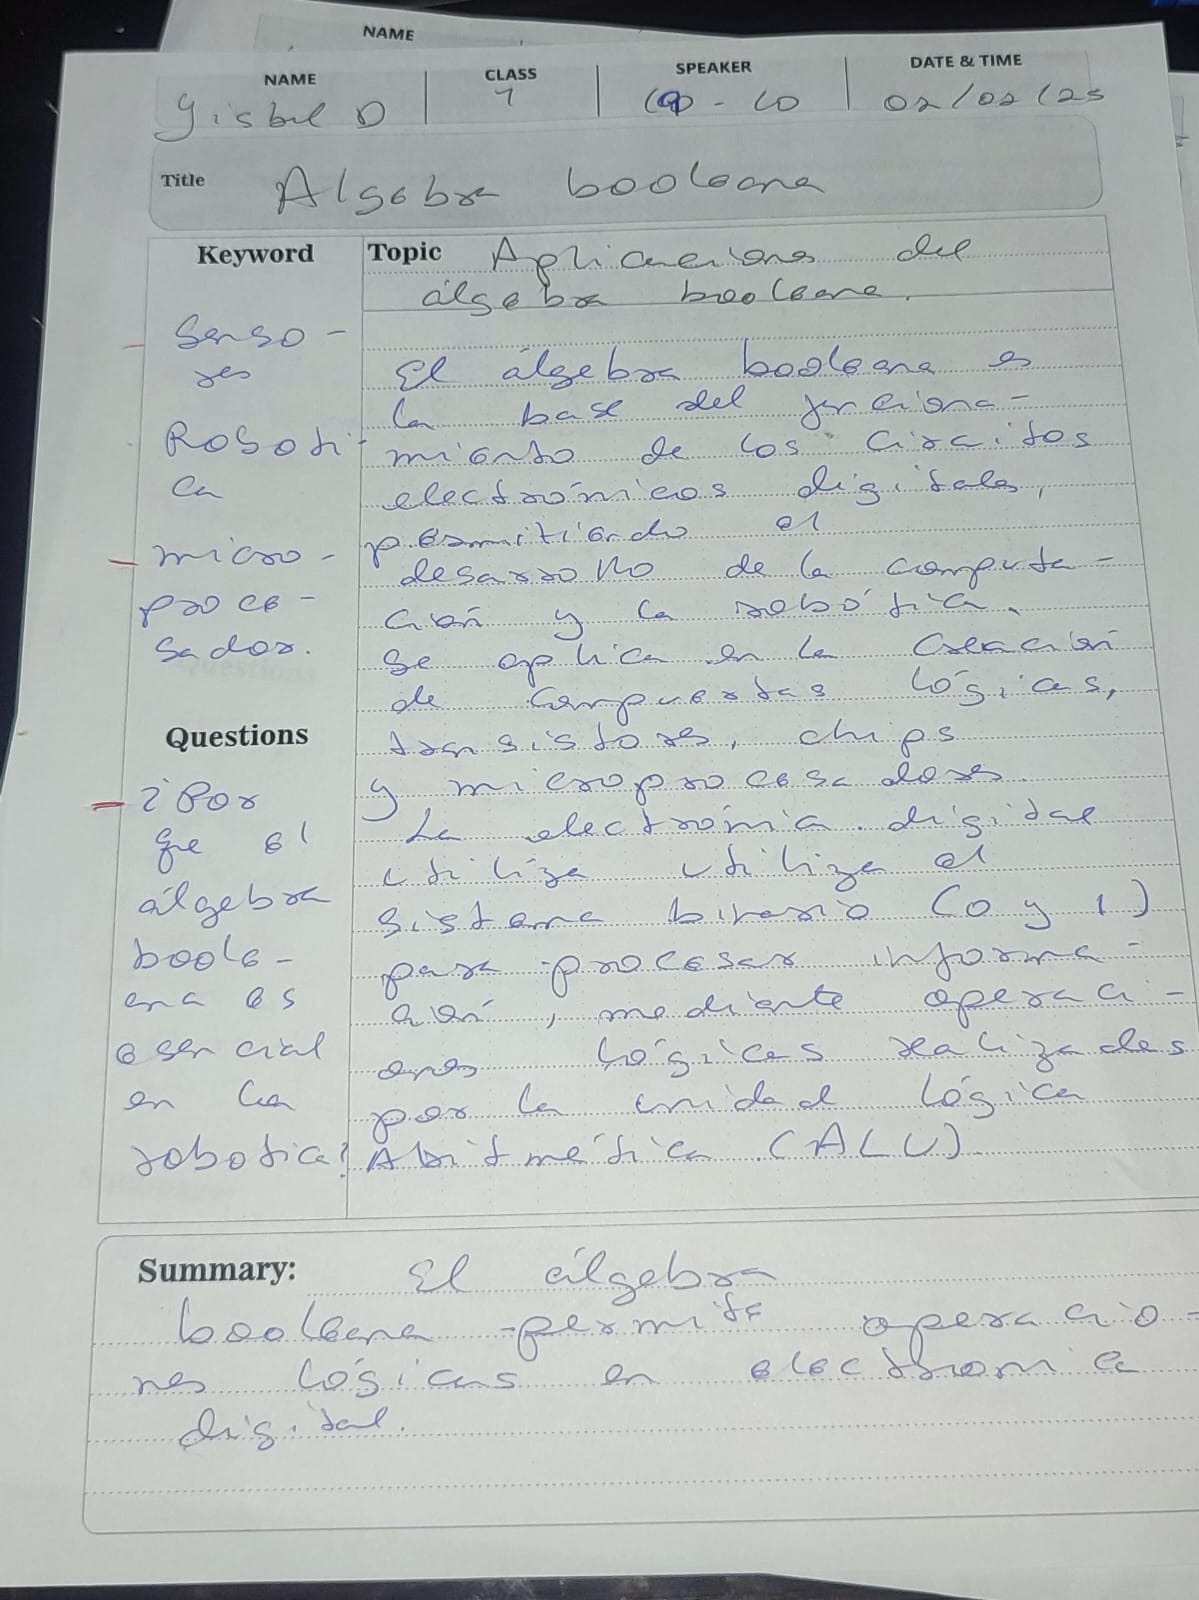 NAME
NAME
CLASS
SPEAKER
DATE & TIME
Gisbel D
7
10
02/02/25
Title
Algebra booleana
Keyword
Senso-
res
Roboti-
ca
micro-
proce-
sador.
Questions
¿Por
que el
álgebra
boole-
ana es
esencial
en la
robotica?
Topic Aplicaciones del
álgebra booleana.
El álgebra booleana es
la base del funciona-
miento de los circuitos
electrónicos digitales,
permitiendo el
desarrollo de la computa-
ción y la robótica.
Se aplica en la creación
de compuertas lógicas,
transistores, chips
y microprocesadores.
La electrónica digital
utiliza utiliza el
sistema binario (0 y 1)
para procesar informa-
ción, mediante operaci-
ones lógicas realizadas
por la unidad lógica
Aritmética (ALU)
Summary: El álgebra
booleana permite operacio-
nes lógicas en electronica
digital.